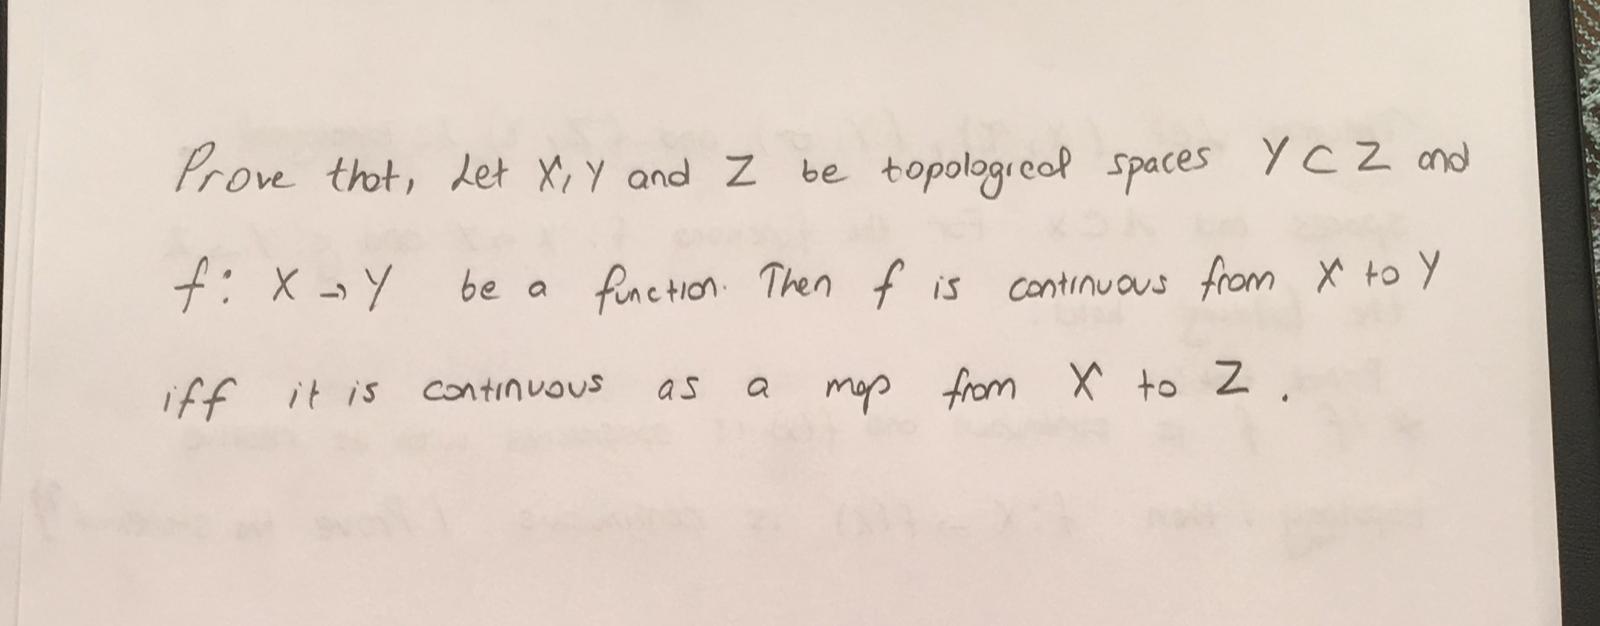 Prove that, Let X, Y and Z be topological spaces Y ⊂ Z and
f: X → Y be a function. Then f is continuous from X to Y
iff it is continuous as a map from X to Z.